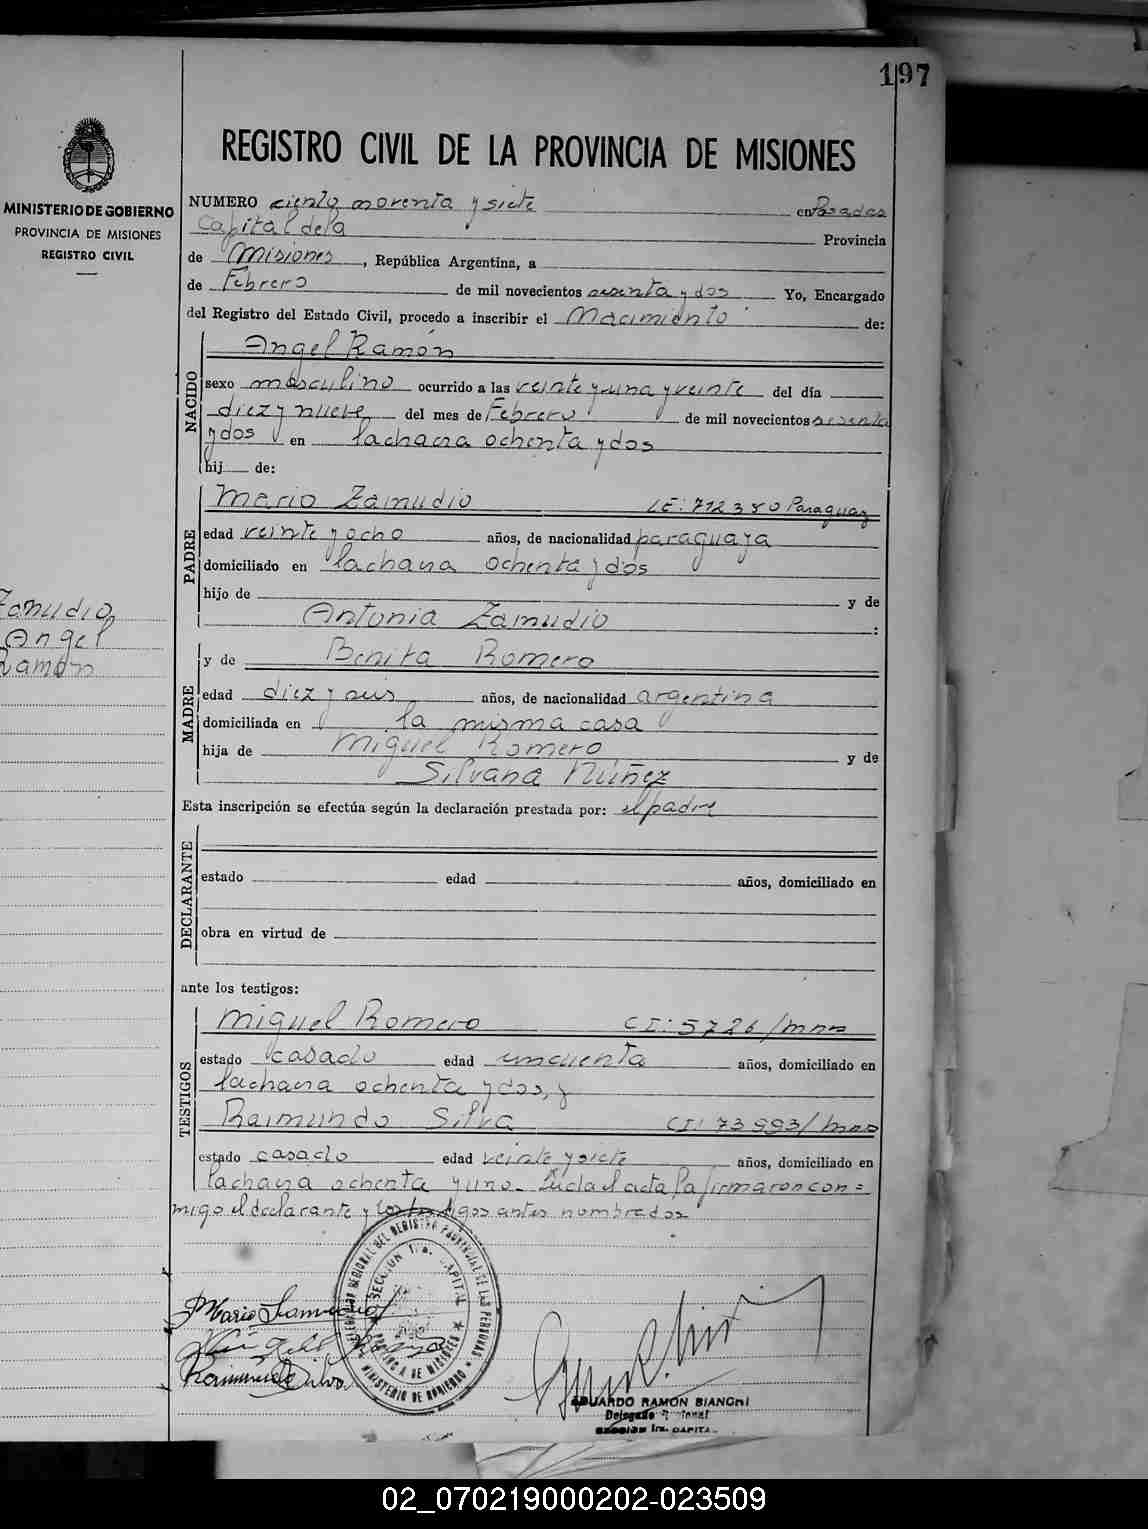 197
REGISTRO CIVIL DE LA PROVINCIA DE MISIONES
MINISTERIO DE GOBIERNO
PROVINCIA DE MISIONES
REGISTRO CIVIL
NUMERO ciento noventa y siete en Posadas
Capital de la Provincia
de Misiones, República Argentina, a
de Febrero de mil novecientos sesenta y dos Yo, Encargado
del Registro del Estado Civil, procedo a inscribir el Nacimiento de:
NACIDO
Angel Ramón
sexo masculino ocurrido a las veinte y una y veinte del día
diez y nueve del mes de Febrero de mil novecientos sesenta
y dos en la chacra ochenta y dos
hij de:
PADRE
Mario Zamudio LE: 712380 Paraguay
edad veinte y ocho años, de nacionalidad paraguaya
domiciliado en la chacra ochenta y dos
hijo de y de
Antonia Zamudio :
MADRE
y de Benita Romero
edad diez y seis años, de nacionalidad argentina
domiciliada en la misma casa
hija de Miguel Romero y de
Silvana Núñez
Zamudio
Angel
Ramón
Esta inscripción se efectúa según la declaración prestada por: el padre
DECLARANTE
estado edad años, domiciliado en
obra en virtud de
ante los testigos:
TESTIGOS
Miguel Romero CI: 5726/mns
estado casado edad cincuenta años, domiciliado en
la chacra ochenta y dos, y
Raimundo Silva CI: 73993/mns
estado casado edad veinte y siete años, domiciliado en
la chacra ochenta y uno. Leída el acta la firmaron con=
migo el declarante y los testigos antes nombrados
Mario Zamudio
Raimundo Silva
SECCION 1ra. CAPITAL
PROVINCIA DE MISIONES
EDUARDO RAMON BIANCHI
Delegado Regional
SECCION 1ra. CAPITAL
02_070219000202-023509